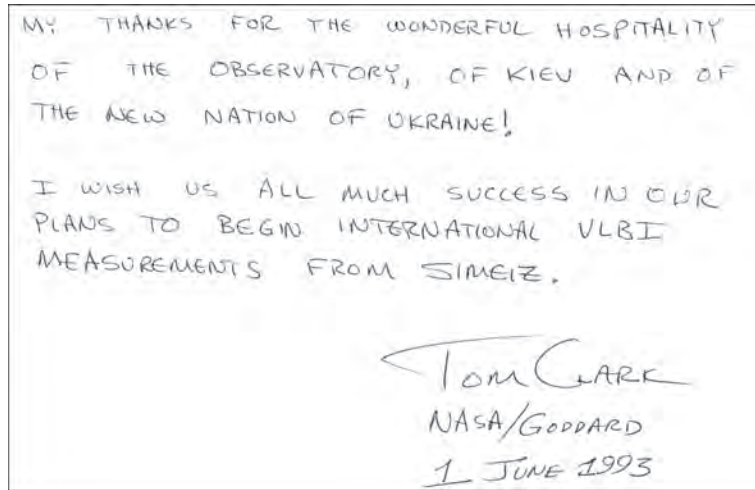 MY THANKS FOR THE WONDERFUL HOSPITALITY
OF THE OBSERVATORY, OF KIEV AND OF
THE NEW NATION OF UKRAINE!
I WISH US ALL MUCH SUCCESS IN OUR
PLANS TO BEGIN INTERNATIONAL VLBI
MEASUREMENTS FROM SIMEIZ.
TOM CLARK
NASA/GODDARD
1 JUNE 1993